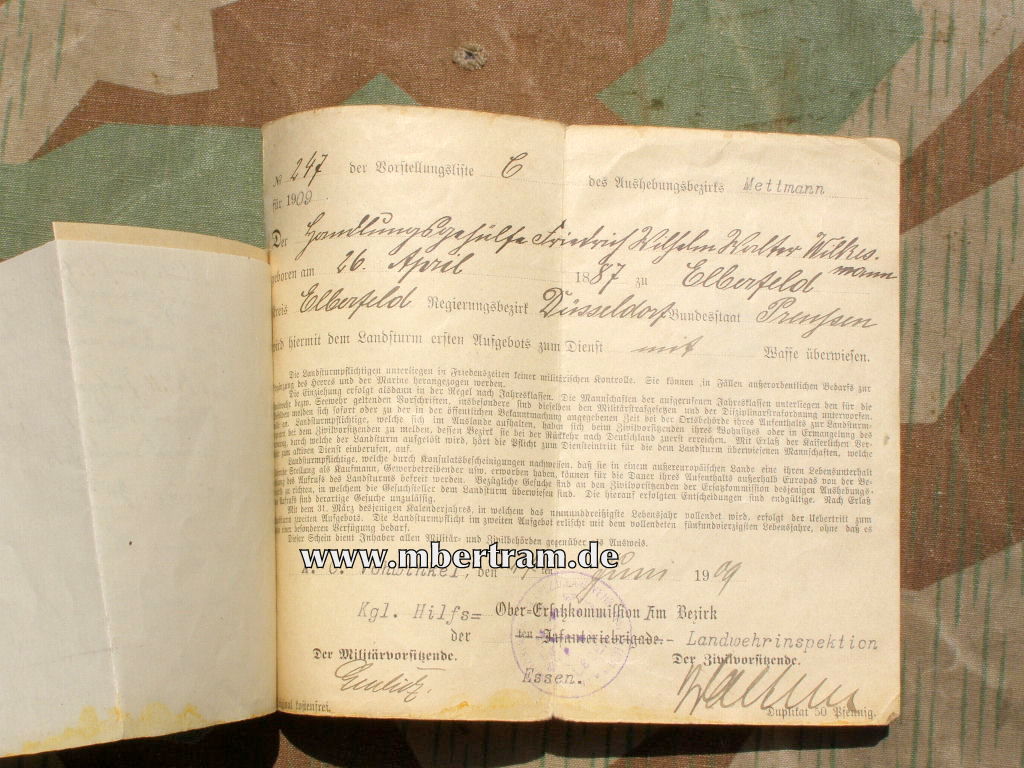 № 247 der Vorstellungsliste C des Aushebungsbezirks Mettmann
für 1909
Der Handlungsgehülfe Friedrich Wilhelm Walter Wilkes-
mann
geboren am 26. April 1887 zu Elberfeld
Kreis Elberfeld Regierungsbezirk Düsseldorf Bundesstaat Preussen
wird hiermit dem Landsturm ersten Aufgebots zum Dienst mit Waffe überwiesen.
Die Landsturmpflichtigen unterliegen in Friedenszeiten keiner militärischen Kontrolle. Sie können in Fällen außerordentlichen Bedarfs zur
Ergänzung des Heeres und der Marine herangezogen werden.
Die Einziehung erfolgt alsdann in der Regel nach Jahresklassen. Die Mannschaften der aufgerufenen Jahresklassen unterliegen den für die
Landwehr bezw. Seewehr geltenden Vorschriften, insbesondere sind dieselben den Militärstrafgesetzen und der Disziplinarstrafordnung unterworfen.
melden sich sofort oder zu der in der öffentlichen Bekanntmachung angegebenen Zeit bei der Ortsbehörde ihres Aufenthalts zur Landsturm-
an. Landsturmpflichtige, welche sich im Auslande aufhalten, haben sich beim Zivilvorsitzenden ihres Wohnsitzes oder in Ermangelung des
bei dem Zivilvorsitzenden zu melden, dessen Bezirk sie bei der Rückkehr nach Deutschland zuerst erreichen. Mit Erlaß der Kaiserlichen Ver-
durch welche der Landsturm aufgelöst wird, hört die Pflicht zum Diensteintritt für die dem Landsturm überwiesenen Mannschaften, welche
zum aktiven Dienst einberufen, auf.
Landsturmpflichtige, welche durch Konsulatsbescheinigungen nachweisen, daß sie in einem außereuropäischen Lande eine ihren Lebensunterhalt
Stellung als Kaufmann, Gewerbetreibender usw. erworben haben, können für die Dauer ihres Aufenthalts außerhalb Europas von der Be-
des Aufrufs des Landsturms befreit werden. Bezügliche Gesuche sind an den Zivilvorsitzenden der Ersatzkommission desjenigen Aushebungs-
zu richten, in welchem die Gesuchsteller dem Landsturm überwiesen sind. Die hierauf erfolgten Entscheidungen sind endgültige. Nach Erlaß
Aufrufs sind derartige Gesuche unzulässig.
Mit dem 31. März desjenigen Kalenderjahres, in welchem das neununddreißigste Lebensjahr vollendet wird, erfolgt der Uebertritt zum
Landsturm zweiten Aufgebots. Die Landsturmpflicht im zweiten Aufgebot erlischt mit dem vollendeten fünfundvierzigsten Lebensjahre, ohne daß es
einer besonderen Verfügung bedarf.
Dieser Schein dient Inhaber allen Militär- und Zivilbehörden gegenüber als Ausweis.
www.mbertram.de
Vohwinkel, den Juni 1909
Kgl. Hilfs= Ober-Ersatzkommission Im Bezirk
der ten Infanteriebrigade. - Landwehrinspektion
Der Militärvorsitzende. Der Zivilvorsitzende.
Essen.
kostenfrei. Duplikat 50 Pfennig.